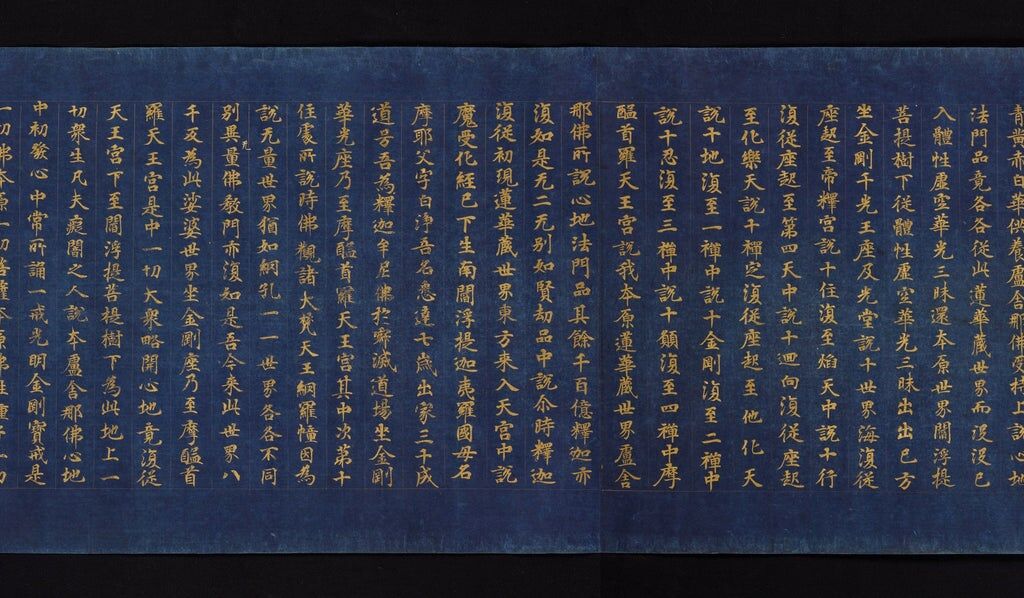 青黃赤白華供養盧舍那佛受持上說心地
法門品竟各各從此蓮華藏世界而沒沒已
入體性虛空華光三昧還本原世界閻浮提
菩提樹下從體性虛空華光三昧出出已方
坐金剛千光王座及光堂說十世界海復從
座起至帝釋宮說十住復至焰天中說十行
復從座起至第四天中說十迴向復從座起
至化樂天說十禪定復從座起至他化天
說十地復至一禪中說十金剛復至二禪中
說十忍復至三禪中說十願復至四禪中摩
醯首羅天王宮說我本原蓮華藏世界盧舍
那佛所說心地法門品其餘千百億釋伽亦
復如是无二无別如賢劫品中說尒時釋迦
復從初現蓮華藏世界東方來入天宮中說
魔受化經已下生南閻浮提迦夷羅國母名
摩耶父字白淨吾名悉達七歲出家三十成
道号吾為釋迦牟尼佛於寂滅道場坐金剛
華光座乃至摩醯首羅天王宮其中次第十
住處所說時佛觀諸大梵天王網羅幢因為
說无量世界猶如網孔一一世界各各不同
別異无量佛教門亦復如是吾今來此世界八
千反為此娑婆世界坐金剛座乃至摩醯首
羅天王宮是中一切大衆略開心地竟復從
天王宮下至閻浮提菩提樹下為此地上一
切衆生凡夫癡闇之人說本盧舍那佛心地
中初發心中常所誦一戒光明金剛寶戒是
一切佛本原一切菩薩本原佛性種子一切